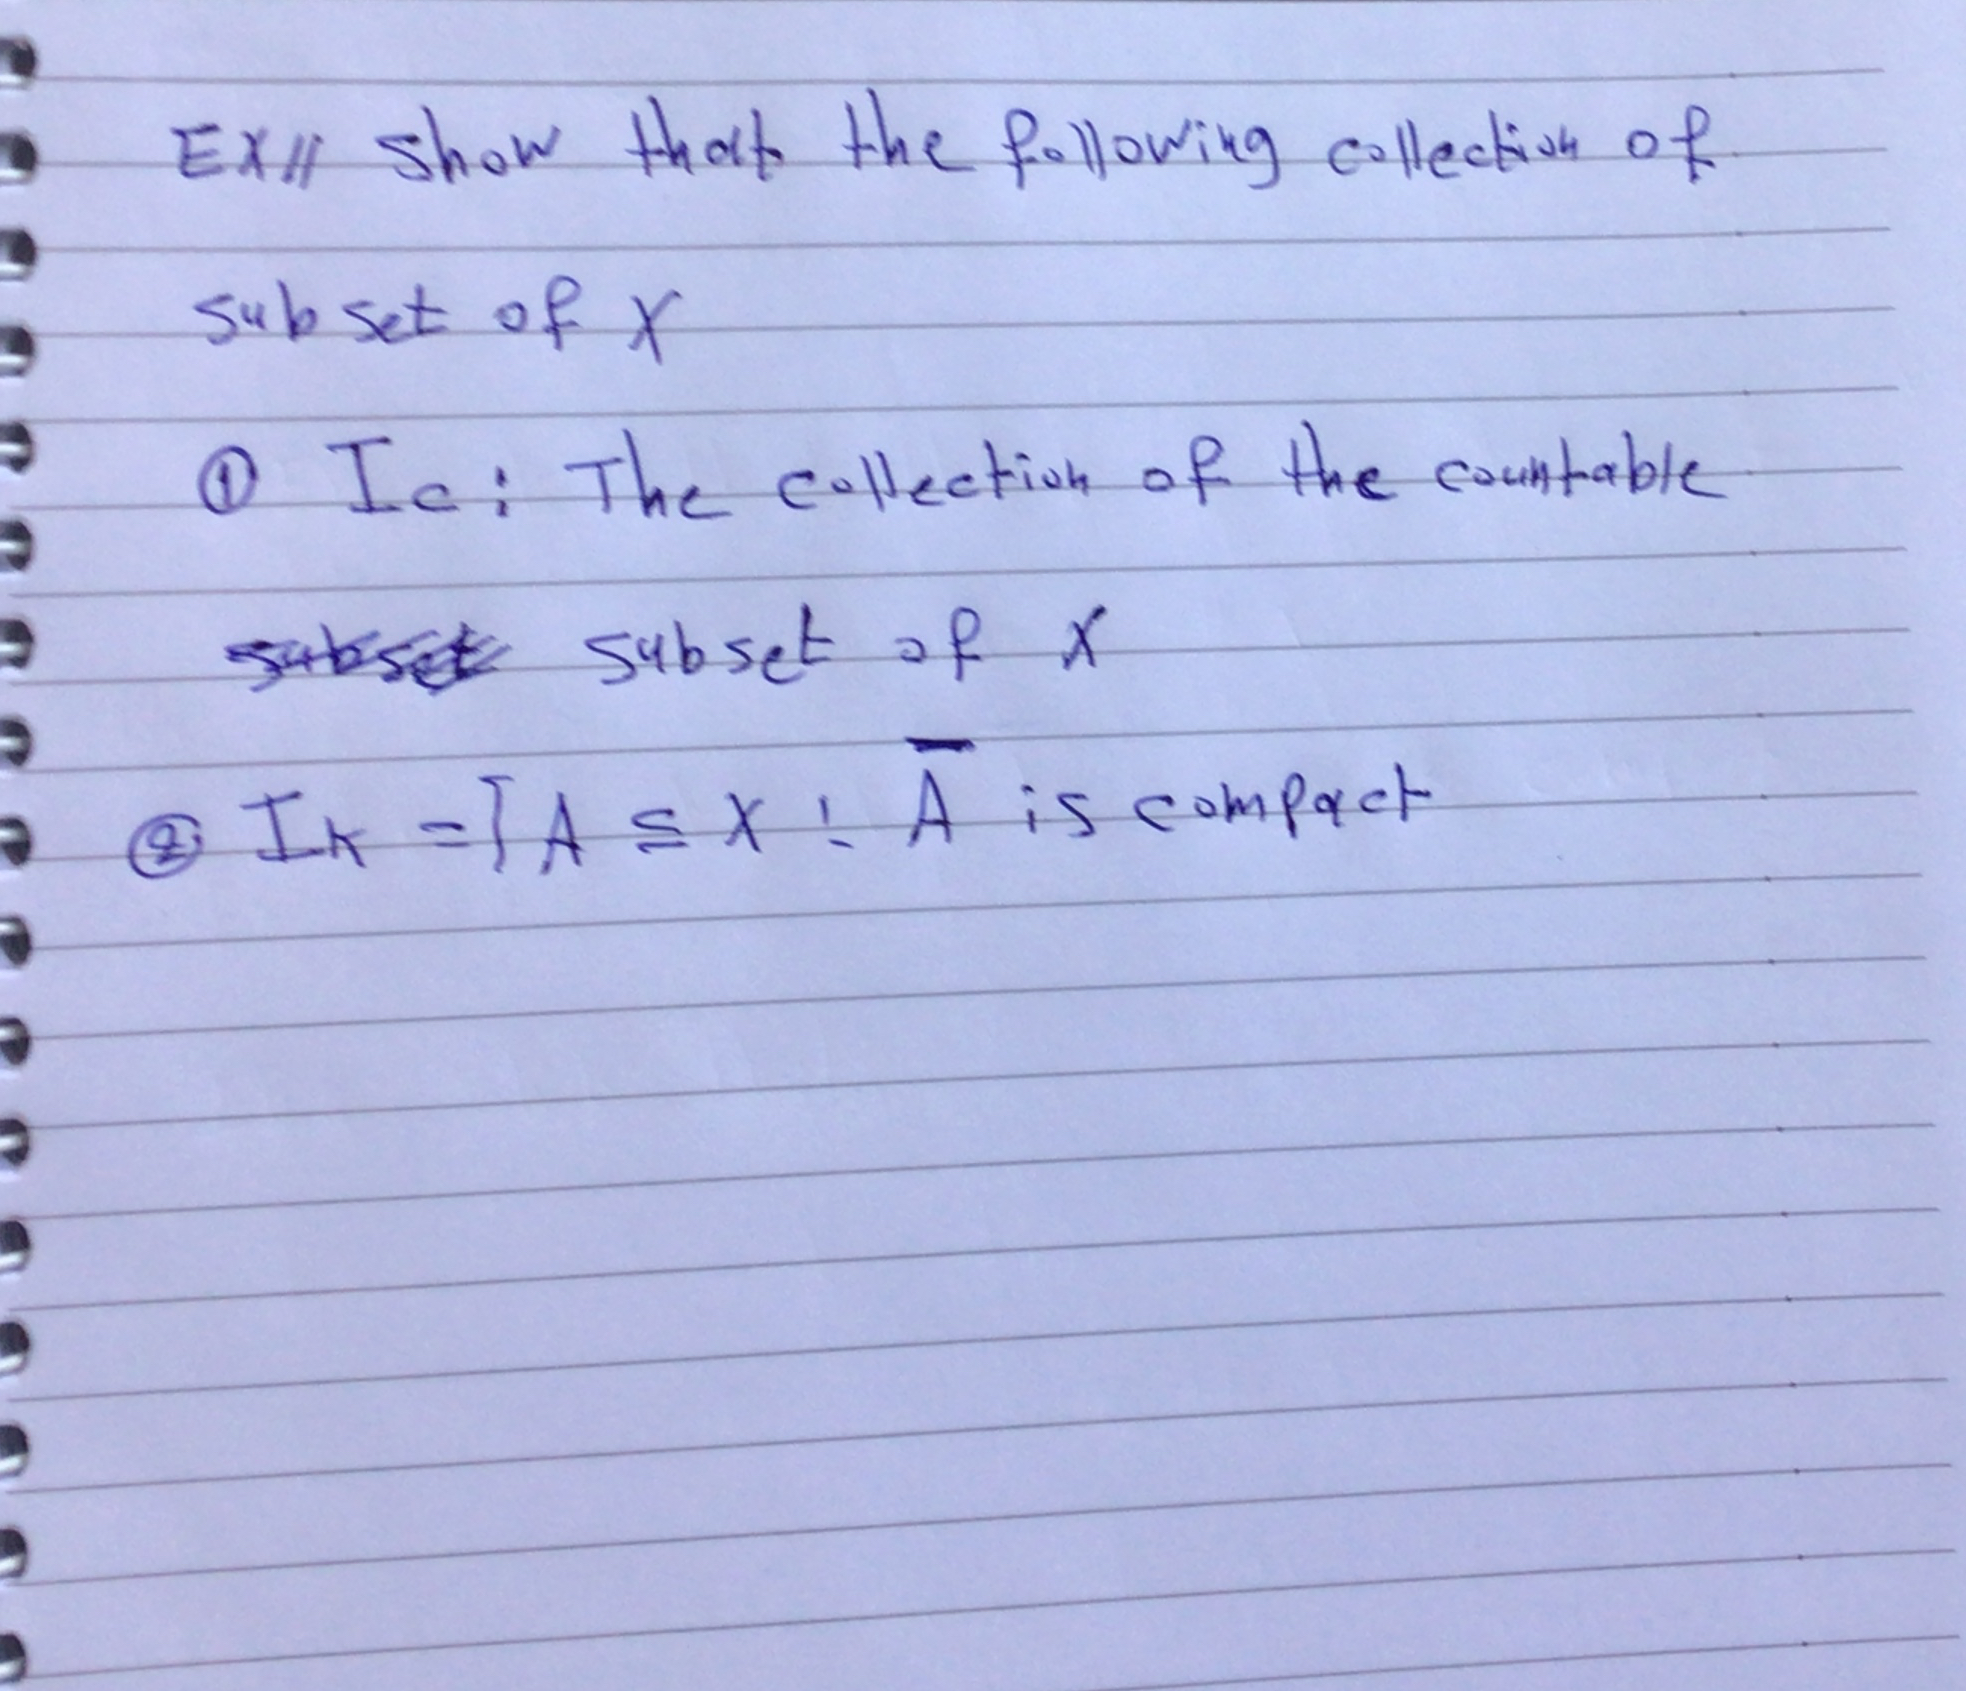 EX// show that the following collection of
subset of X
① Ic : The collection of the countable
subset subset of X
② IK = { A ⊆ X : A̅ is compact